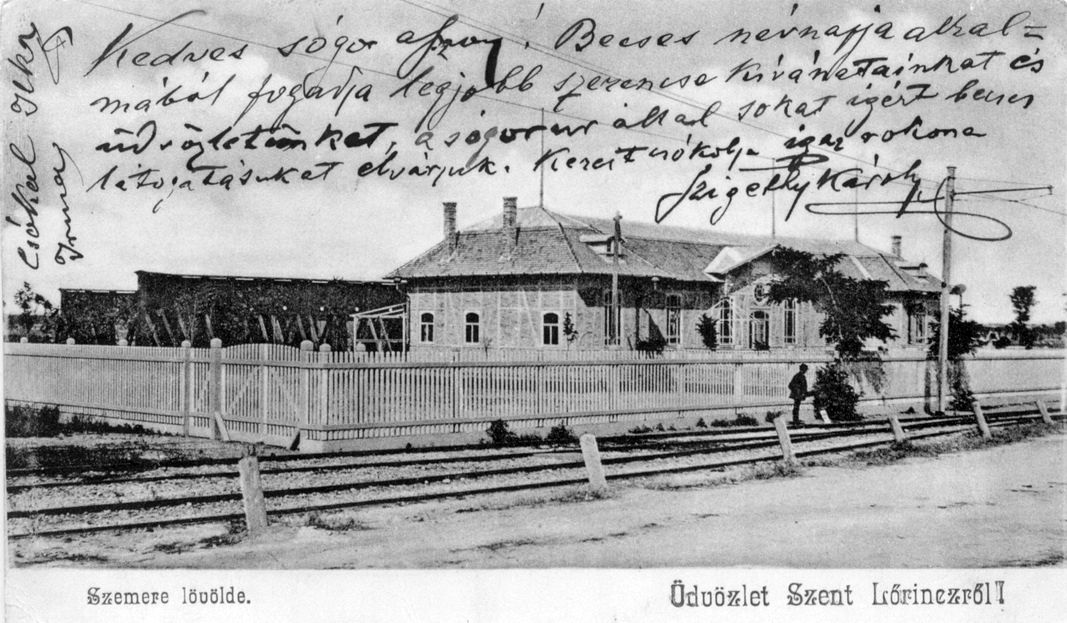 Kedves sógor asszony! Becses névnapja alkal=
mából fogadja legjobb szerencse kívánatainkat és
üdvözletünket, a sógor úr által sokat igért becses
látogatásukat elvárjuk. Kezeit csókolja igaz rokona
Szigethy Károly
Csókol Ilka
Irma
Szemere lövölde.
Üdvözlet Szent Lőrinczről!